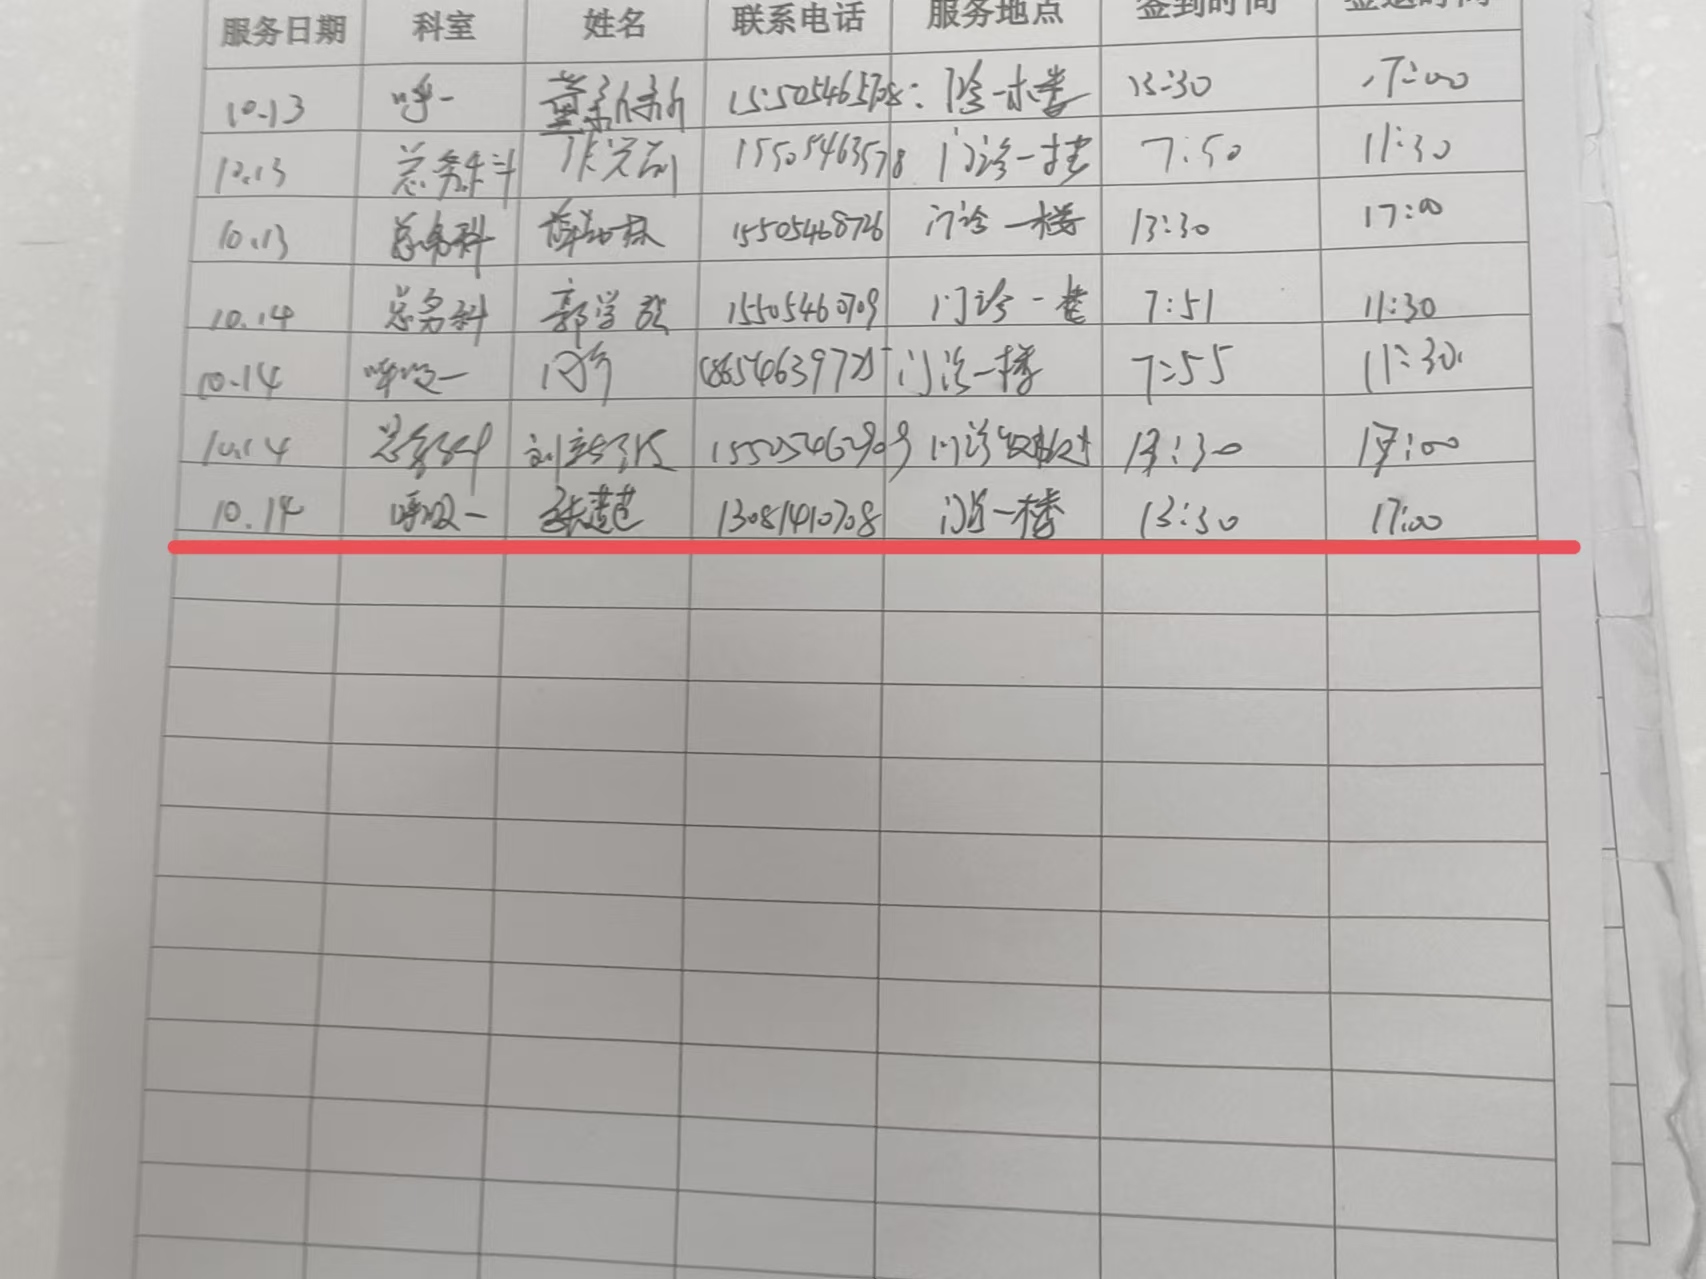 服务日期 科室 姓名 联系电话 服务地点 签到时间 签退时间
10.13 呼一 15505465708 门诊一楼 13:30 17:00
10.13 总务科 15505463578 门诊一楼 7:50 11:30
10.13 总务科 15505468726 门诊一楼 13:30 17:00
10.14 总务科 郭学 15505460709 门诊一楼 7:51 11:30
10.14 呼吸一 门诊一楼 7:55 11:30
10.14 总务科 刘 门诊 13:30 17:00
10.14 呼吸一 张楚 13081410708 门诊一楼 13:30 17:00